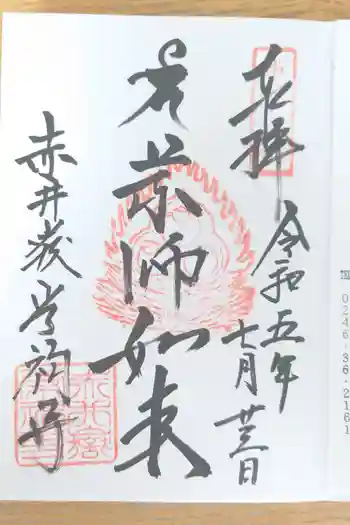 奉拝
令和五年
七月廿三日
薬師如来
赤井嶽常福寺
0246-36-2161